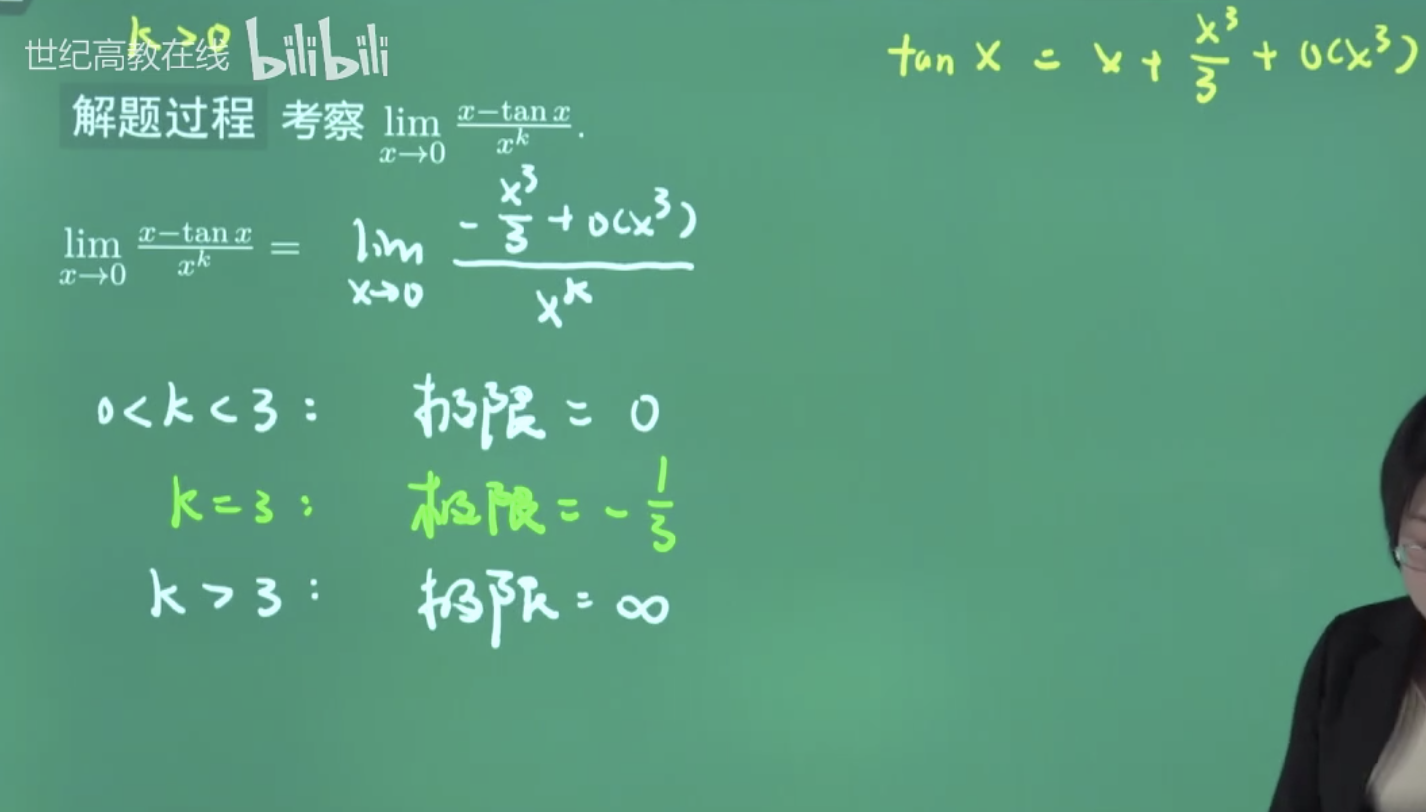 k>0
世纪高教在线 bilibili
tan x = x + x³/3 + o(x³)
解题过程 考察 lim x→0 (x−tan x)/x^k.
lim x→0 (x−tan x)/x^k = lim x→0 (−x³/3 + o(x³))/x^k
0<k<3: 极限 = 0
k=3: 极限 = −1/3
k>3: 极限 = ∞